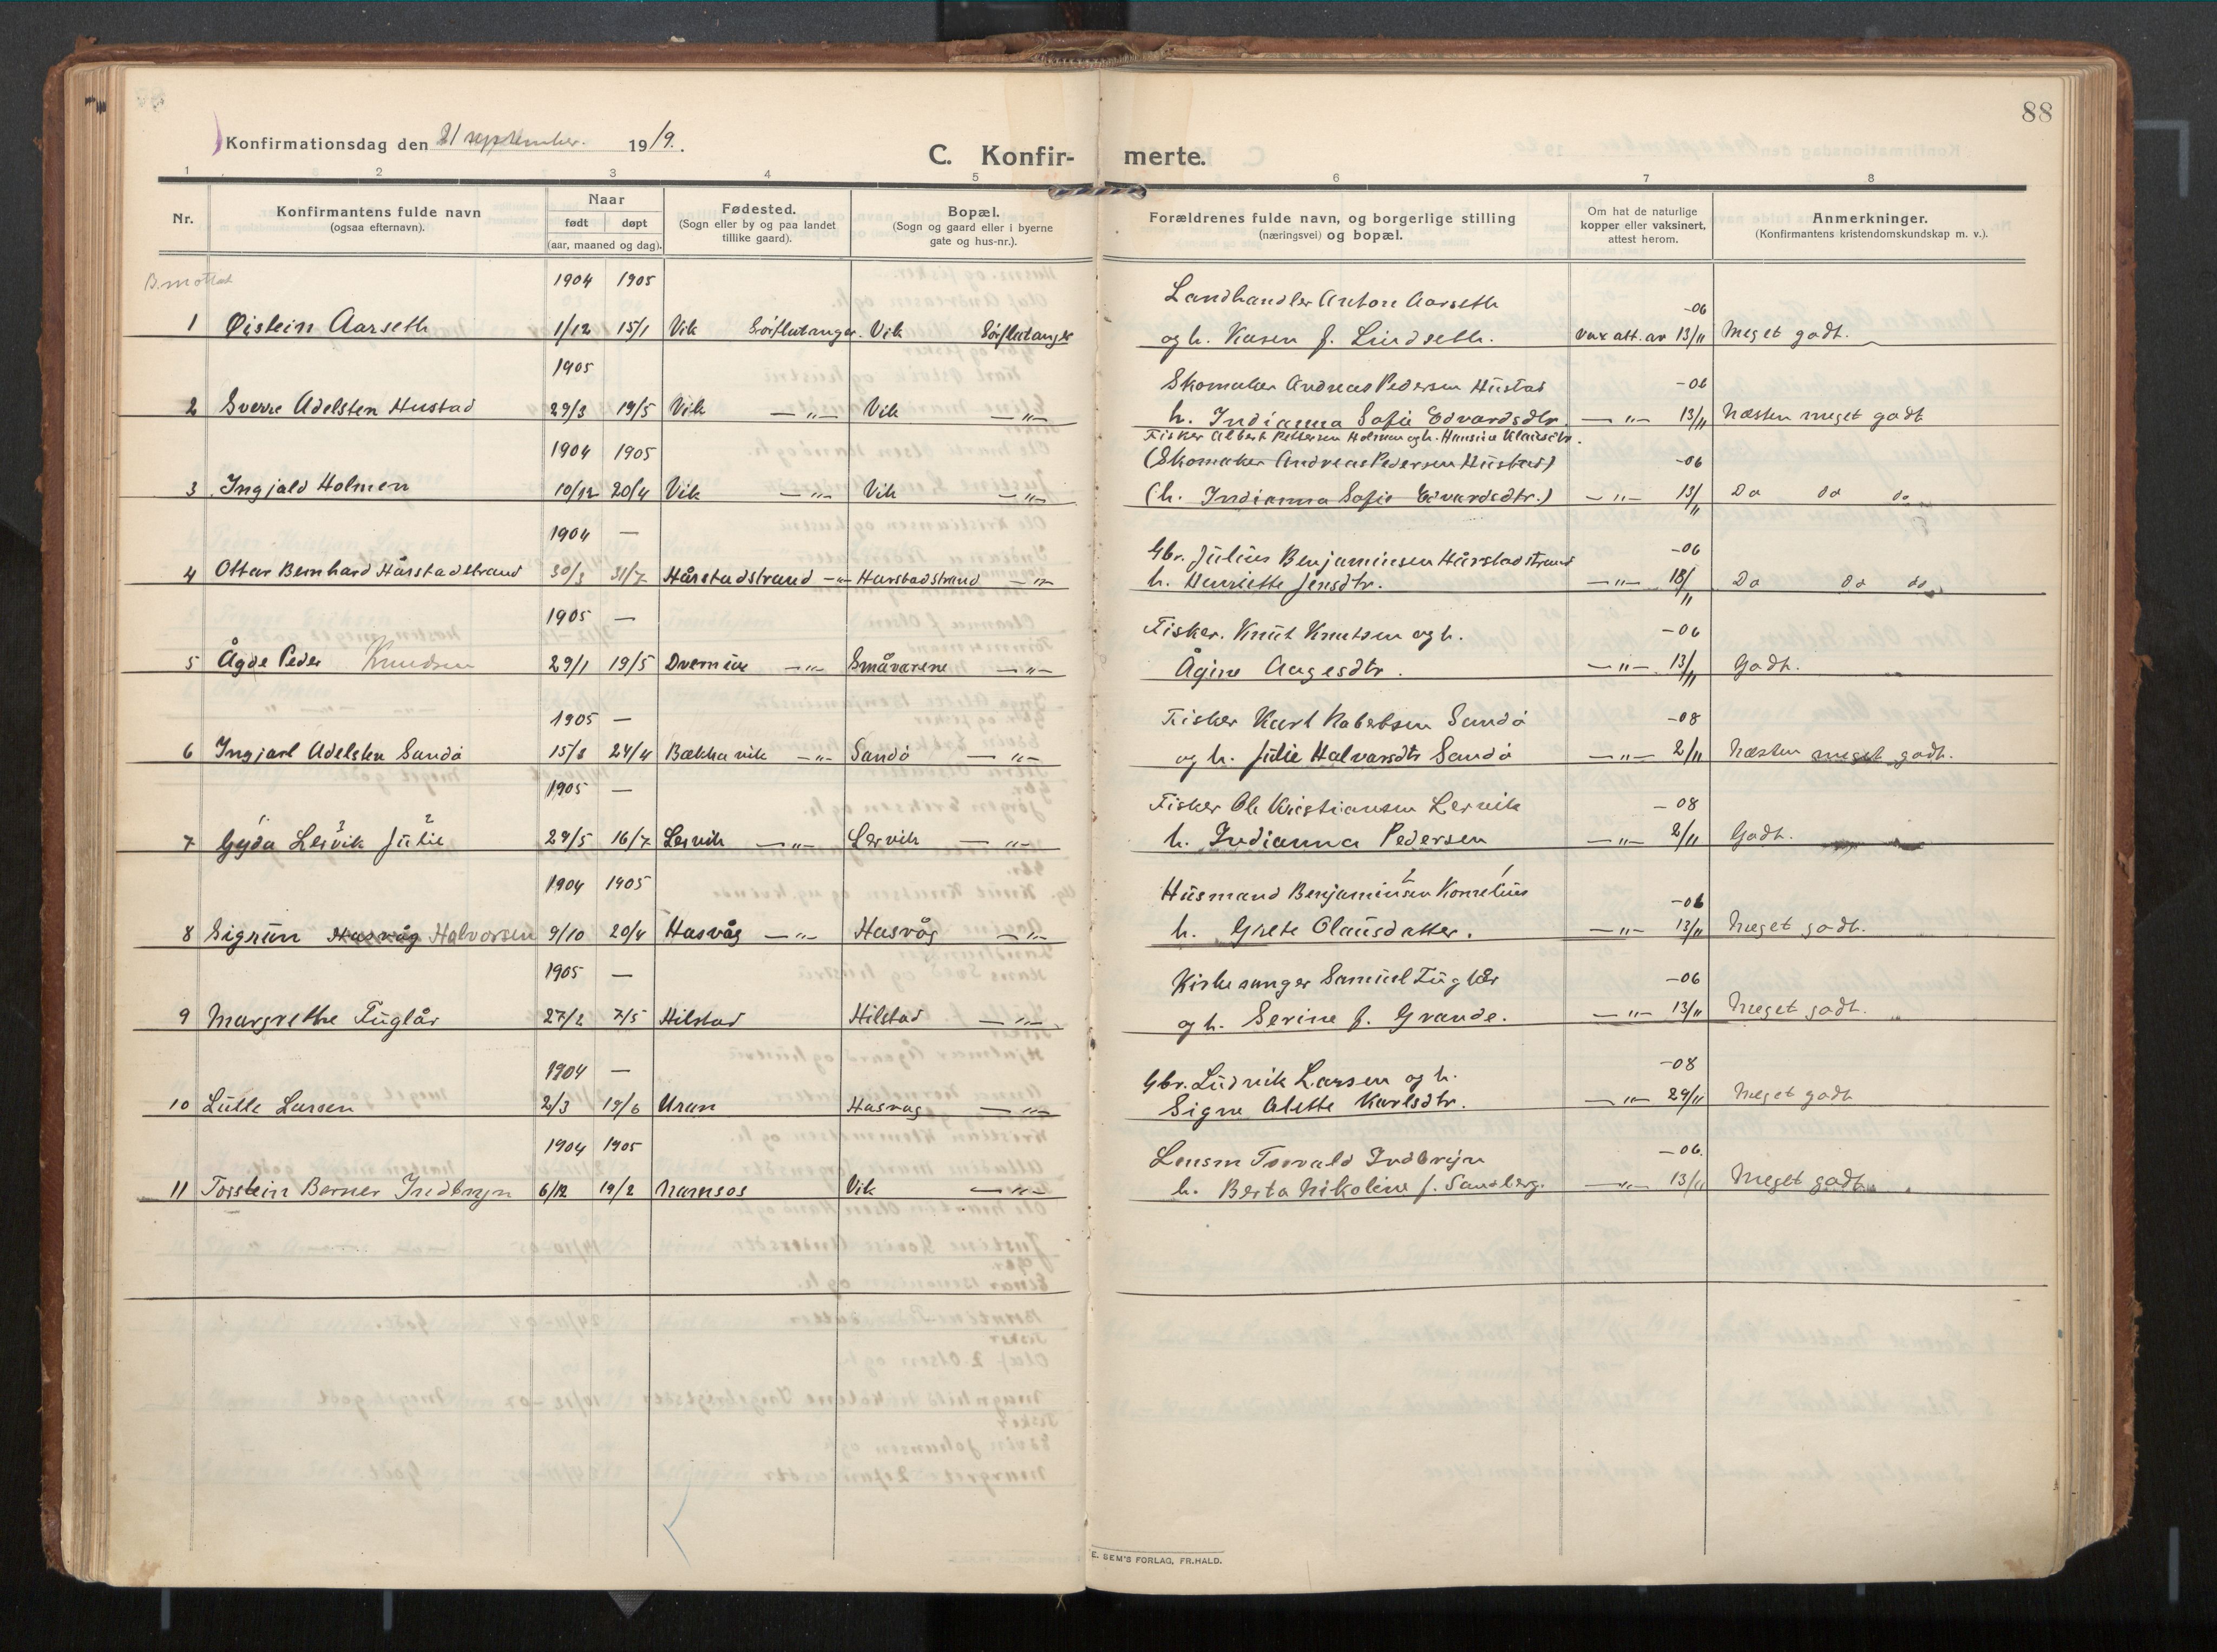 88
Konfirmationsdag den 21 september. 1919.
C. Konfir- merte.
1 2 3 4 5 6 7 8
Nr. Konfirmantens fulde navn (ogsaa efternavn). Naar født døpt (aar, maaned og dag). Fødested. (Sogn eller by og paa landet tillike gaard). Bopæl. (Sogn og gaard eller i byerne gate og hus-nr.). Forældrenes fulde navn, og borgerlige stilling (næringsvei) og bopæl. Om hat de naturlige kopper eller vaksinert, attest herom. Anmerkninger. (Konfirmantens kristendomskundskap m. v.).
1904 1905 Landhandler Anton Aarseth -06
1 Øistein Aarseth 1/12 15/1 Vik Vik og h. f. Lindseth. Vax att. av 13/11 Meget godt.
1905 Skomaker Andreas Pedersen Hustad -06
2 Sverre Adelsten Hustad 29/3 19/5 Vik —"— Vik —"— h. Indianna Sofie Edvardsdtr. —"— 13/11 Næsten meget godt
Fisker Albert Pettersen Holmen og h. Hansine Klausdtr.
1904 1905 (Skomaker Andreas Pedersen Hustad) -06
3 Ingjald Holmen 10/12 20/4 Vik —"— Vik —"— (h. Indianna Sofie Edvardsdtr.) —"— 13/11 Do do do
1904 — Gbr. Julius Benjaminsen Hårstadstrand -06
4 Ottar Bernhard Hårstadstrand 30/3 31/7 Hårstadstrand —"— Harstadstrand —"— h. Henriette Jensdtr. —"— 18/11 Do do do
1905 — Fisker. Knut Knutsen og h. -06
5 Ågde Peder Knudsen 29/1 19/5 Småværene —"— Ågine Aagesdtr. —"— 13/11 Godt.
1905 — Fisker Karl Robertsen Sandø -08
6 Ingjarl Adelsten Sandø 15/3 24/4 Bækkavik —"— Sandø —"— og h. Julie Halvarsdtr Sandø —"— 2/11 Næsten meget godt.
1905 — Fisker Ole Kristiansen Lervik -08
7 Gyda Lervik Julie 29/5 16/7 Lervik —"— Lervik —"— h. Indianna Pedersen —"— 2/11 Godt.
1904 1905 Husmand Benjaminsen Kornelius -06
8 Sigrun Hasvåg Halvorsen 9/10 20/4 Hasvåg —"— Hasvåg —"— h. Grete Olausdatter. —"— 13/11 Meget godt.
1905 — Kirkesanger Samuel Fuglår -06
9 Margrethe Fuglår 27/2 7/5 Hilstad Hilstad —"— og h. Serine f. Grande. —"— 13/11 Meget godt.
1904 — Gbr. Ludvik Larsen og h. -08
10 Lulle Larsen 2/3 19/6 Uran Hasvag —"— Signe Alette Karlsdtr. —"— 29/11 Meget godt
1904 1905 Lensm Torvald Indbryn -06.
11 Torstein Berner Indbryn 6/12 19/2 Namsos Vik —"— h. Berta Nikoline f. Sandberg. —"— 13/11 Meget godt.
E. SEM'S FORLAG, FR.HALD.